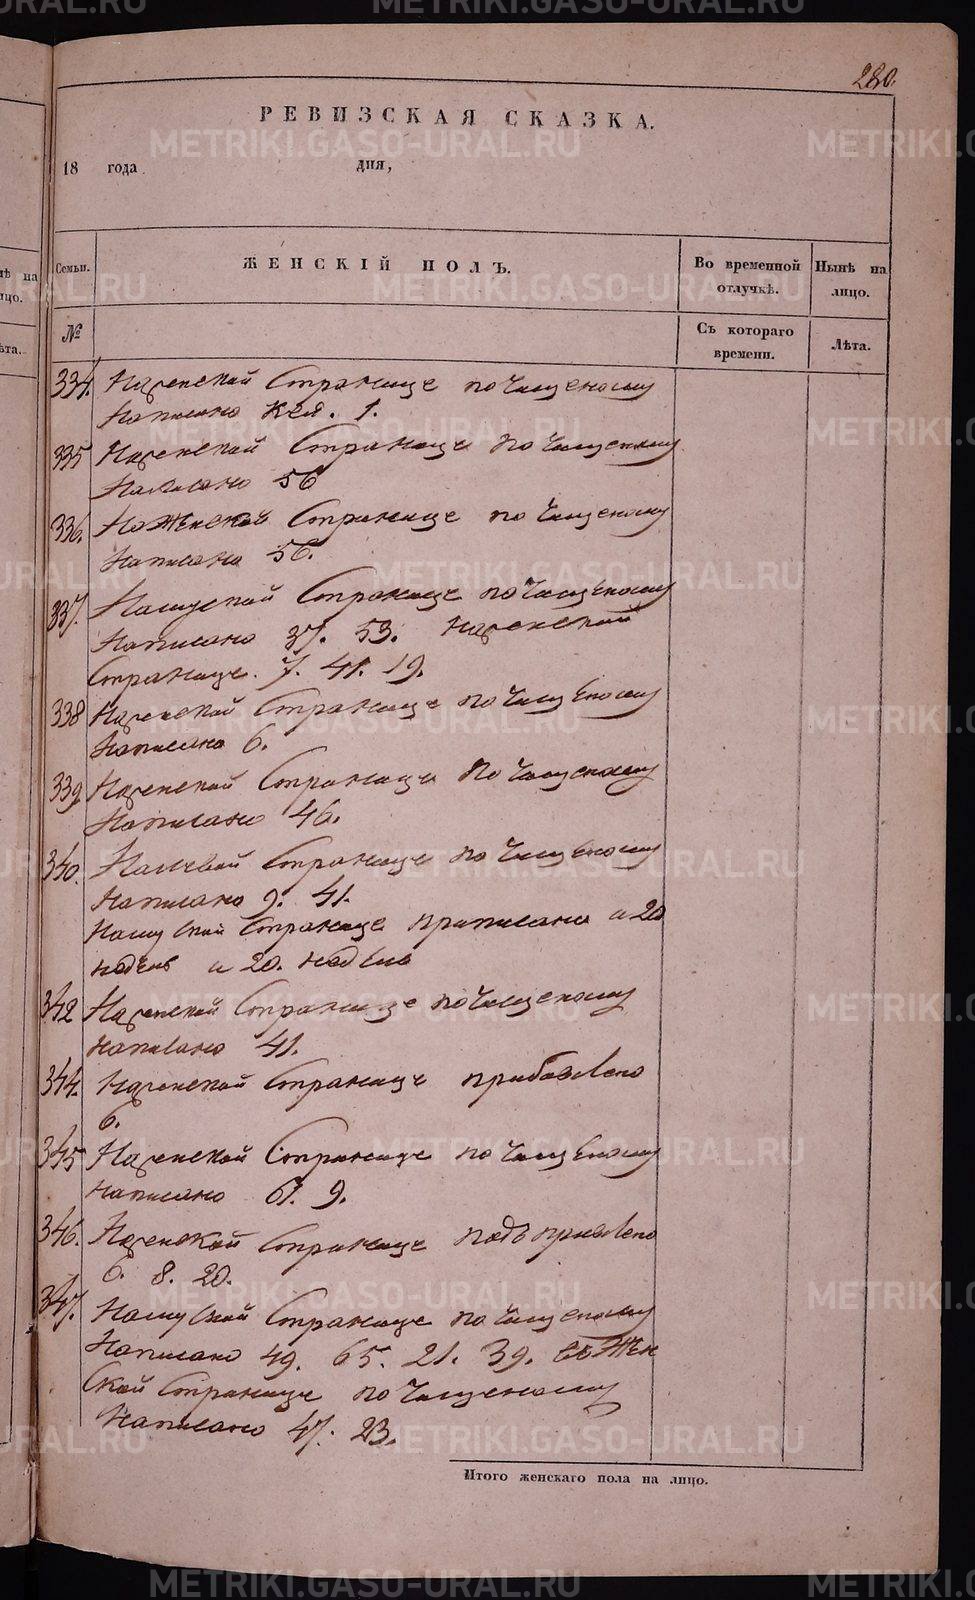 280.
РЕВИЗСКАЯ СКАЗКА.
18 года дня,
Семьи. ЖЕНСКІЙ ПОЛЪ. Во временной отлучкѣ. Нынѣ на лицо.
№ Съ котораго времени. Лѣта.
334. На женской Странице почищеному
Написано 1.
335 На женской Странице по чищеному
Написано 56
336. На женской Странице по чищеному
Написано 56.
337. На муской Странице по чищеному
Написано 37. 53. На женской
Странице. 7. 41. 19.
338 На женской Странице по чищеному
Написано 6.
339 На женской Странице по чищеному
Написано 46.
340. Странице по чищеному
Написано 9. 41.
На муской Странице приписано и 20
и 20.
342 На женской Странице по чищеному
Написано 41.
344. На женской Странице прибавлено
6.
345 На женской Странице по чищеному
Написано 61. 9.
346. На женской Странице
6. 8. 20.
347. На муской Странице по чищеному
Написано 49. 65. 21. 39. жен
ской Странице по чищеному
Написано 47. 23.
Итого женскаго пола на лицо.
ѣ на
цо.
ѣта.
METRIKI.GASO-URAL.RU